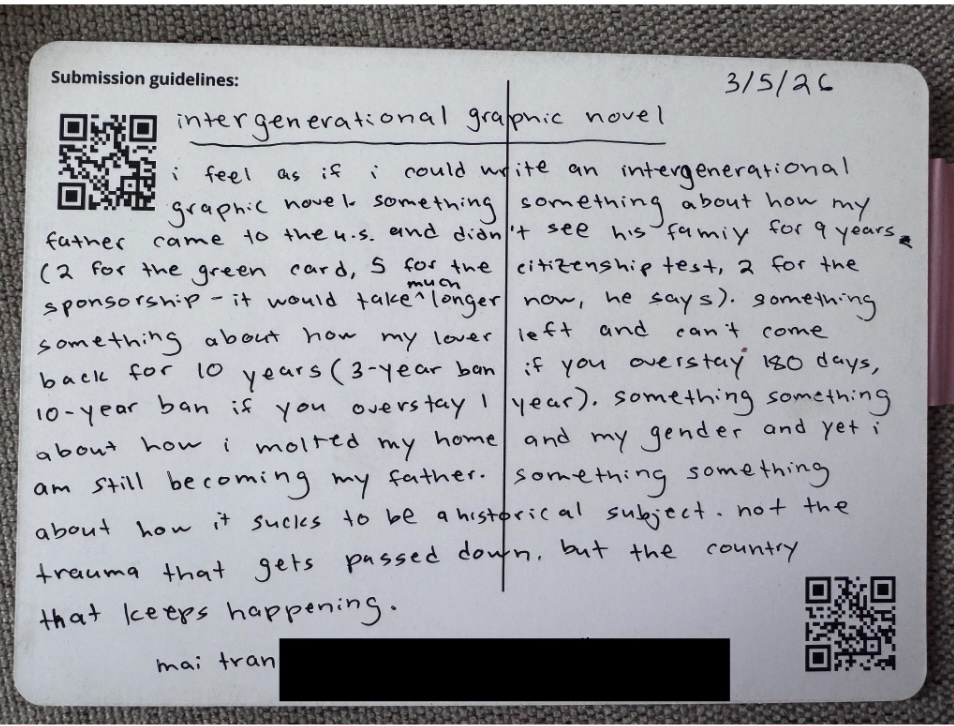 Submission guidelines:
3/5/26
intergenerational graphic novel
i feel as if i could write an intergenerational
graphic novel. something something about how my
father came to the u.s. and didn't see his famiy for 9 years
(2 for the green card, 5 for the citizenship test, 2 for the
much
sponsorship - it would take ^ longer now, he says). something
something about how my lover left and can't come
back for 10 years (3-year ban if you overstay 180 days,
10-year ban if you overstay 1 year). something something
about how i molted my home and my gender and yet i
am still becoming my father. something something
about how it sucks to be a historical subject. not the
trauma that gets passed down, but the country
that keeps happening.
mai tran